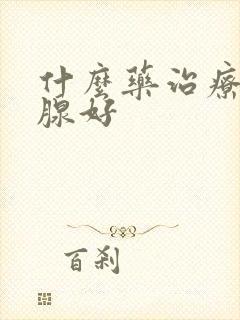 什麼藥治療
腺好
百剎